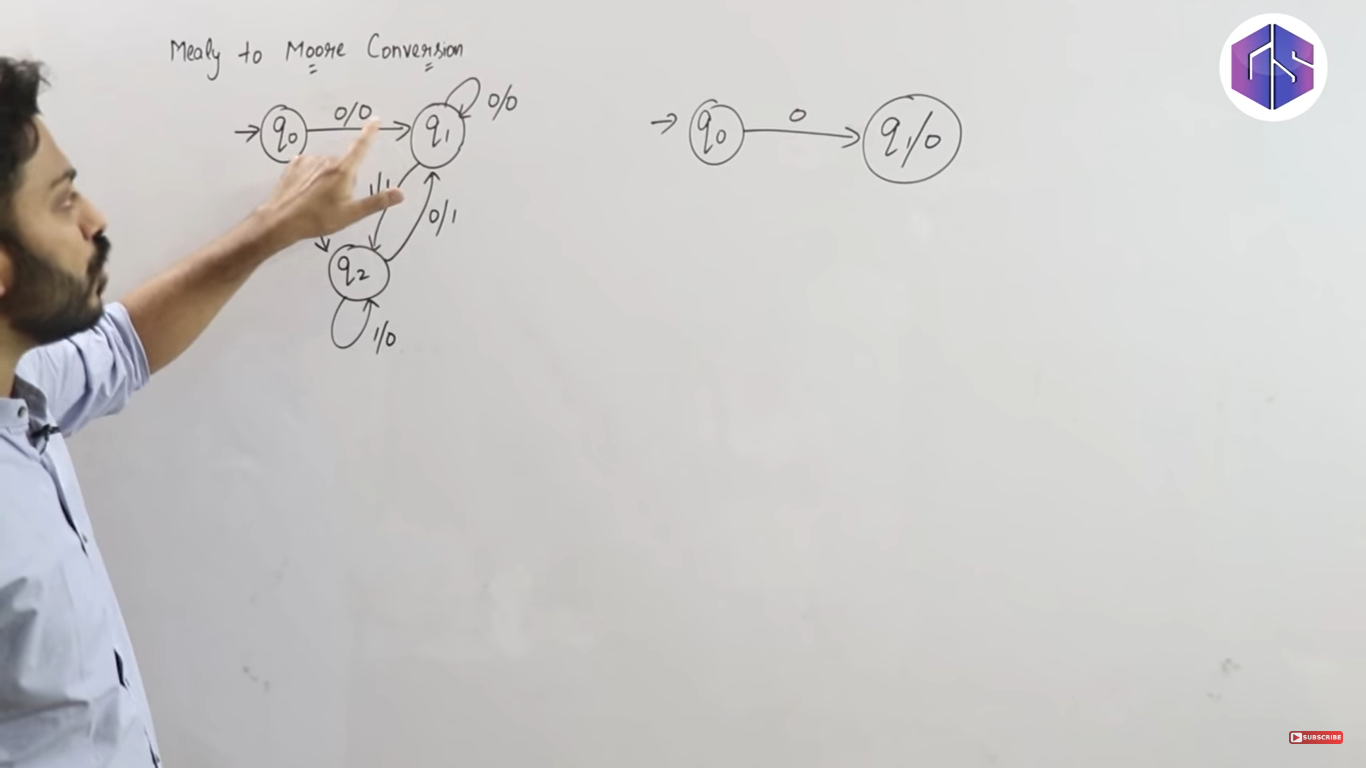 Mealy to Moore Conversion
q0
0/0
q1
0/0
0/1
q2
1/0
q0
0
q1/0
GS
SUBSCRIBE